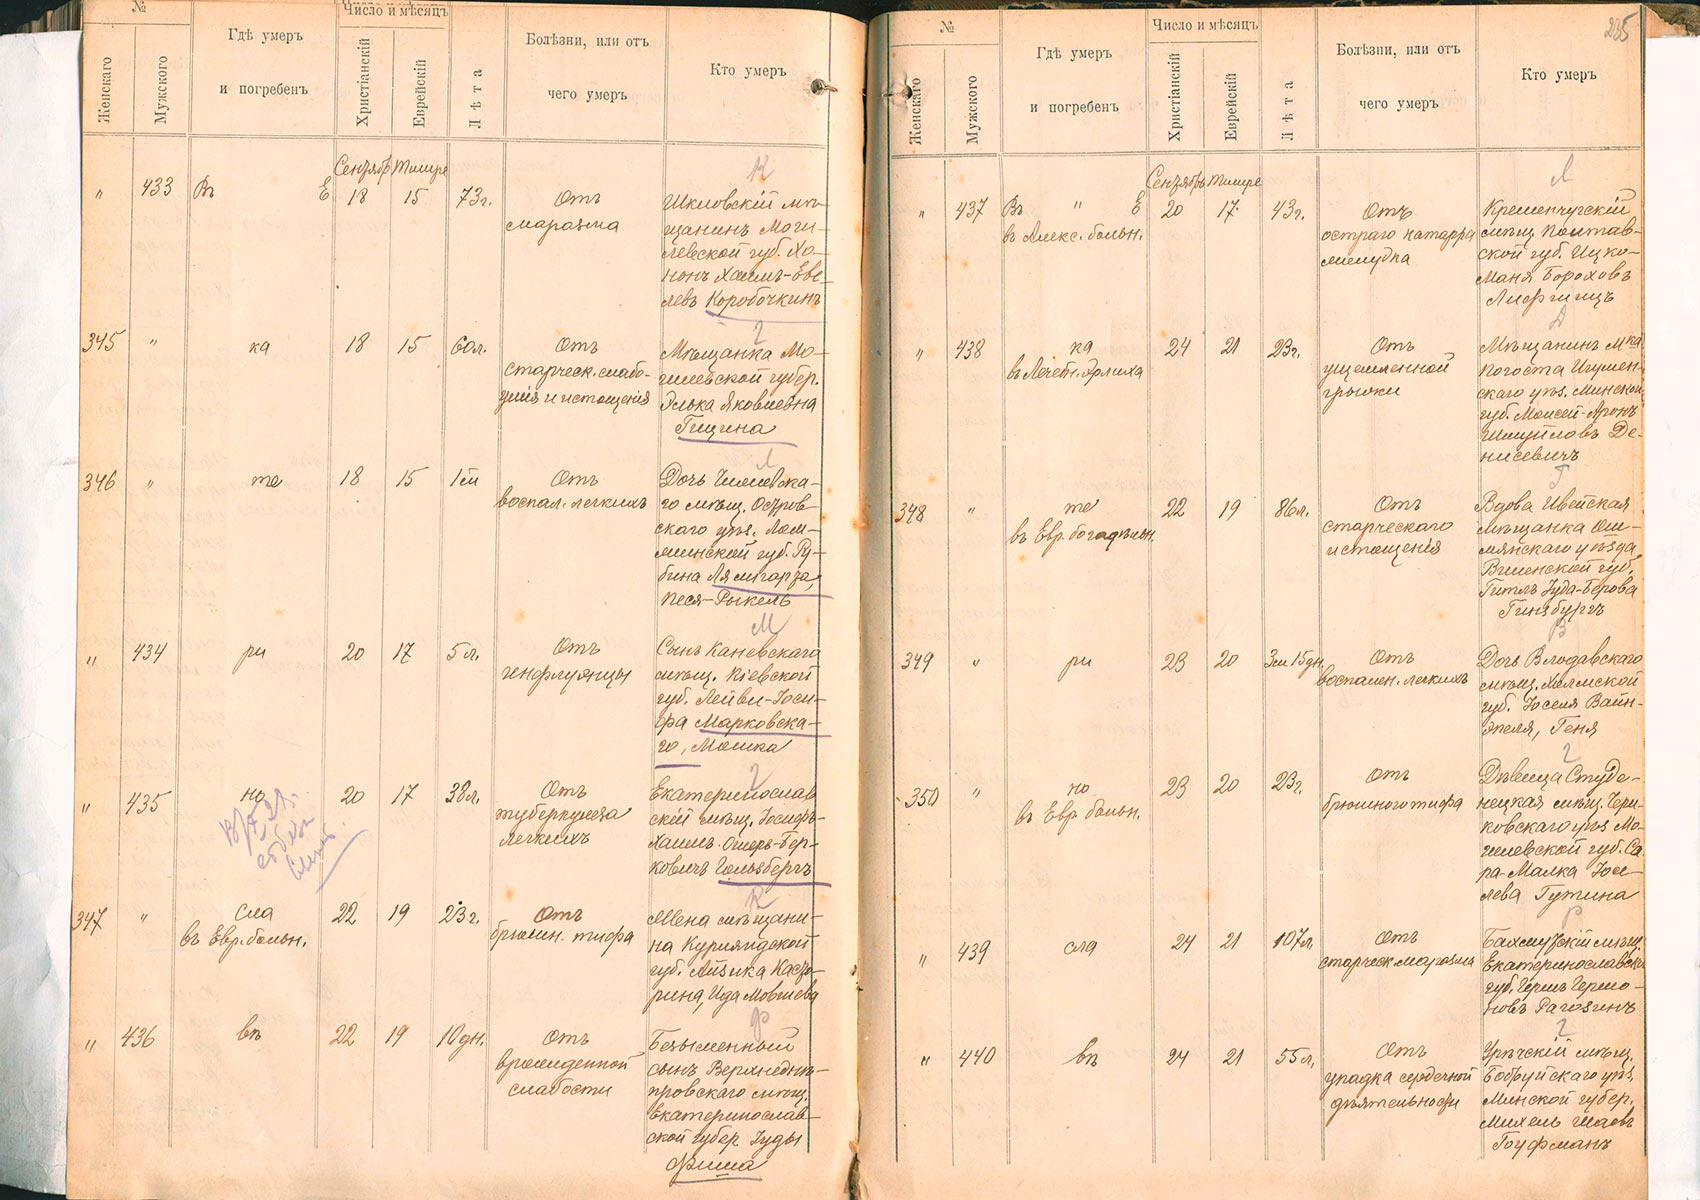 №
Женскаго
Мужского
Гдѣ умеръ
и погребенъ
Число и мѣсяцъ
Христіанскій
Еврейскій
Лѣта
Болѣзни, или отъ
чего умеръ
Кто умеръ
Сентябр Тишре
К
" 433 Въ Е 18 15 73г.
Отъ
маразма
Шкловскій мѣ-
щанинъ Моги-
левской губ. Хо-
нонъ Хаимъ-Еве-
левъ Коробочкинъ
Г
345 " ка 18 15 60л.
Отъ
старческ. слабо-
умія и истощенія
Мѣщанка Мо-
гилевской губер.
Элька Яковлевна
Гищина
Л
346 " те 18 15 1ⅿ
Отъ
воспал. легкихъ
Дочь
го мѣщ. Остров-
скаго уѣз. Лом-
жинской губ. Ру-
бина Лямгарза,
Песя-Рыкель
М
" 434 ри 20 17 5л.
Отъ
инфлуэнцы
Сынъ Каневскаго
мѣщ. Кіевской
губ. Лейви-Іоси-
фа Марковска-
го, Мошка
Г
" 435 но 20 17 38л.
Отъ
туберкулеза
легкихъ
Екатеринослав
скій мѣщ. Іосифъ-
Хаимъ-Ошеръ-Бер-
ковичъ Гользбергъ
К
347 " сла 22 19 23г.
въ Евр. больн.
Отъ
брюшн. тифа
Жена мѣщани-
на Курляндской
губ. Айзика
рина, Ида Мовшева
Ф
" 436 въ 22 19 10дн.
Отъ
врожденной
слабости
Безыменный
сынъ Верхнеднѣ-
провскаго мѣщ.
Екатеринослав-
ской губер. Іуды
Фиша
235
№
Женскаго
Мужского
Гдѣ умеръ
и погребенъ
Число и мѣсяцъ
Христіанскій
Еврейскій
Лѣта
Болѣзни, или отъ
чего умеръ
Кто умеръ
Сентябрь Тишре
Л
" 437 Въ " Е 20 17 43г.
въ Алекс. больн.
Отъ
остраго катарра
желудка
Кременчугскій
мѣщ. Полтав-
ской губ. Ицко-
Маня Бороховъ
Лифшицъ
Д
" 438 ка 24 21 23г.
въ Лечебн. Эрлиха
Отъ
ущемленной
грыжи
Мѣщанинъ мка
Погоста Игумен-
скаго уѣз. Минской
губ. Моисей-Аронъ
Шмуйловъ Де-
нисевичъ
Г
348 " те 22 19 86л.
въ Евр. богадѣльн.
Отъ
старческаго
истощенія
Вдова Ивейская
мѣщанка Ош-
мянскаго уѣзда
Виленской губ.
Гитль Іуда-Берова
Гинзбургъ
В
349 " ри 23 20 3м 15дн.
Отъ
воспален. легкихъ
Дочь Влодавскаго
мѣщ. Холмской
губ. Іоселя Вайн-
апеля, Геня
Г
350 " но 23 20 23г.
въ Евр. больн.
Отъ
брюшного тифа
Дѣвица Студе-
нецкая мѣщ. Чери-
ковскаго уѣз. Мо-
гилевской губ. Са-
ра-Малка Іосе-
лева Гутина
Р
" 439 сла 24 21 107л.
Отъ
старческ. маразма
Бахмутскій мѣщ.
Екатеринославск.
губ. Гершъ Гершо-
новъ Рагозинъ
Г
" 440 въ 24 21 55л.
Отъ
упадка сердечной
дѣятельности
мѣщ.
Бобруйскаго уѣз.
Минской губер.
Михель Шаевъ
Гоуфманъ